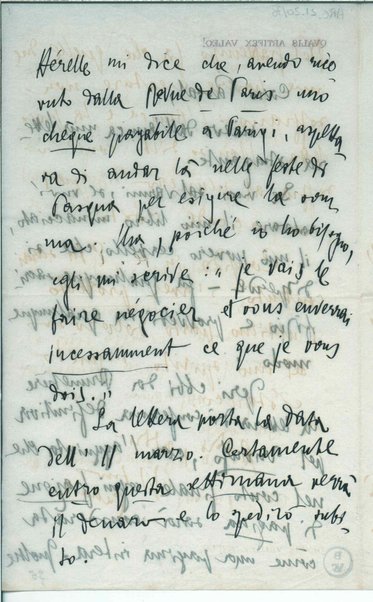 Hérelle mi dice che, avendo rice-
vuto dalla Revue de Paris uno
chèque pagabile a Parigi, aspetta-
va di andar là nelle feste di
Pasqua per esigere la som-
ma. Ma, poiché io ho bisogno,
egli mi scrive: "je vais le
faire négocier et vous enverrai
incessamment ce que je vous
dois."
La lettera porta la data
dell' 11 marzo. Certamente
entro questa settimana verrà
il denaro e lo spedirò subi-
to.